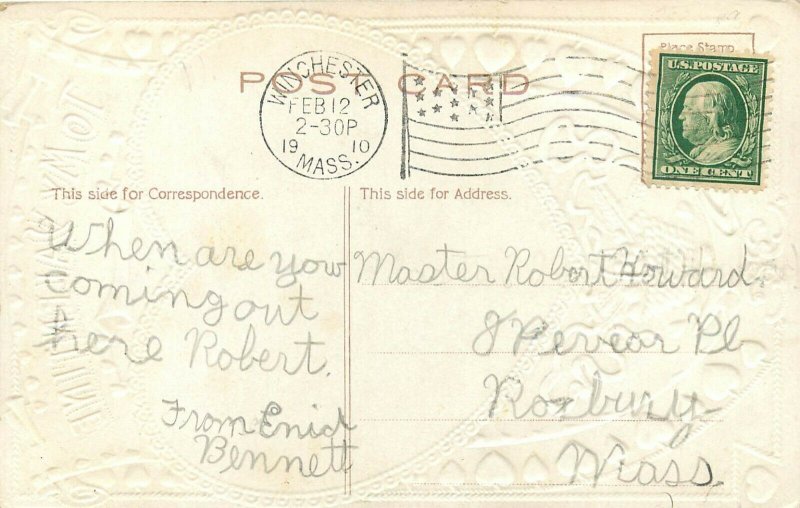 Place Stamp
U.S. POSTAGE
ONE CENT
POST CARD
WINCHESTER
FEB 12
2-30P
19 10
MASS.
This side for Correspondence.
This side for Address.
When are you
coming out
here Robert.
From Enid
Bennett
Master Robert Howard.
8 Pevear Pl
Roxbury
Mass.